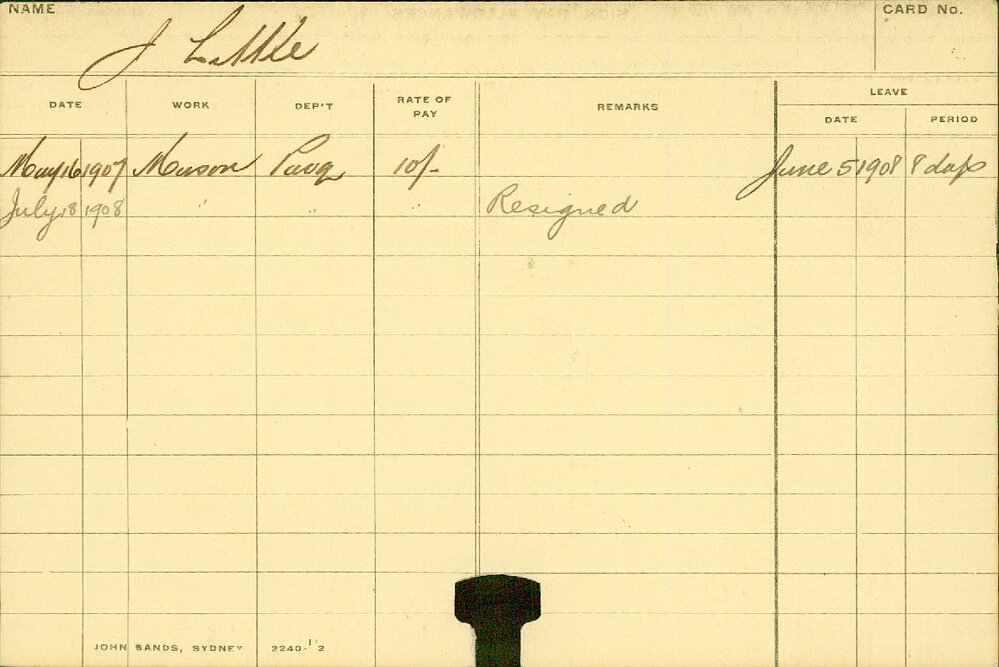 NAME
CARD No.
J Little
DATE WORK DEP'T RATE OF PAY REMARKS LEAVE
DATE PERIOD
May 16 1907 Mason Pavg 10/- June 5 1908 8 days
July 18 1908 " " " Resigned
JOHN SANDS, SYDNEY 2240-1/2